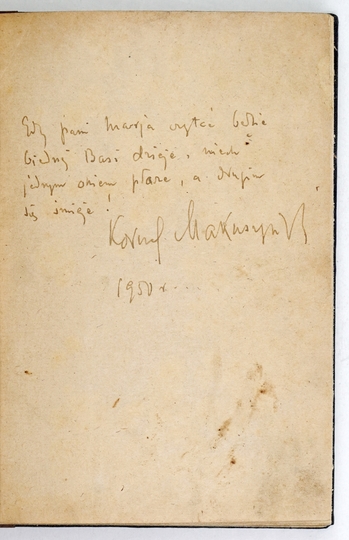 Gdy pani Marja czytać będzie
biednej Basi dzieje, niech
jednym okiem płacze, a drugim
się śmieje!
Kornel Makuszyński
1950 r...